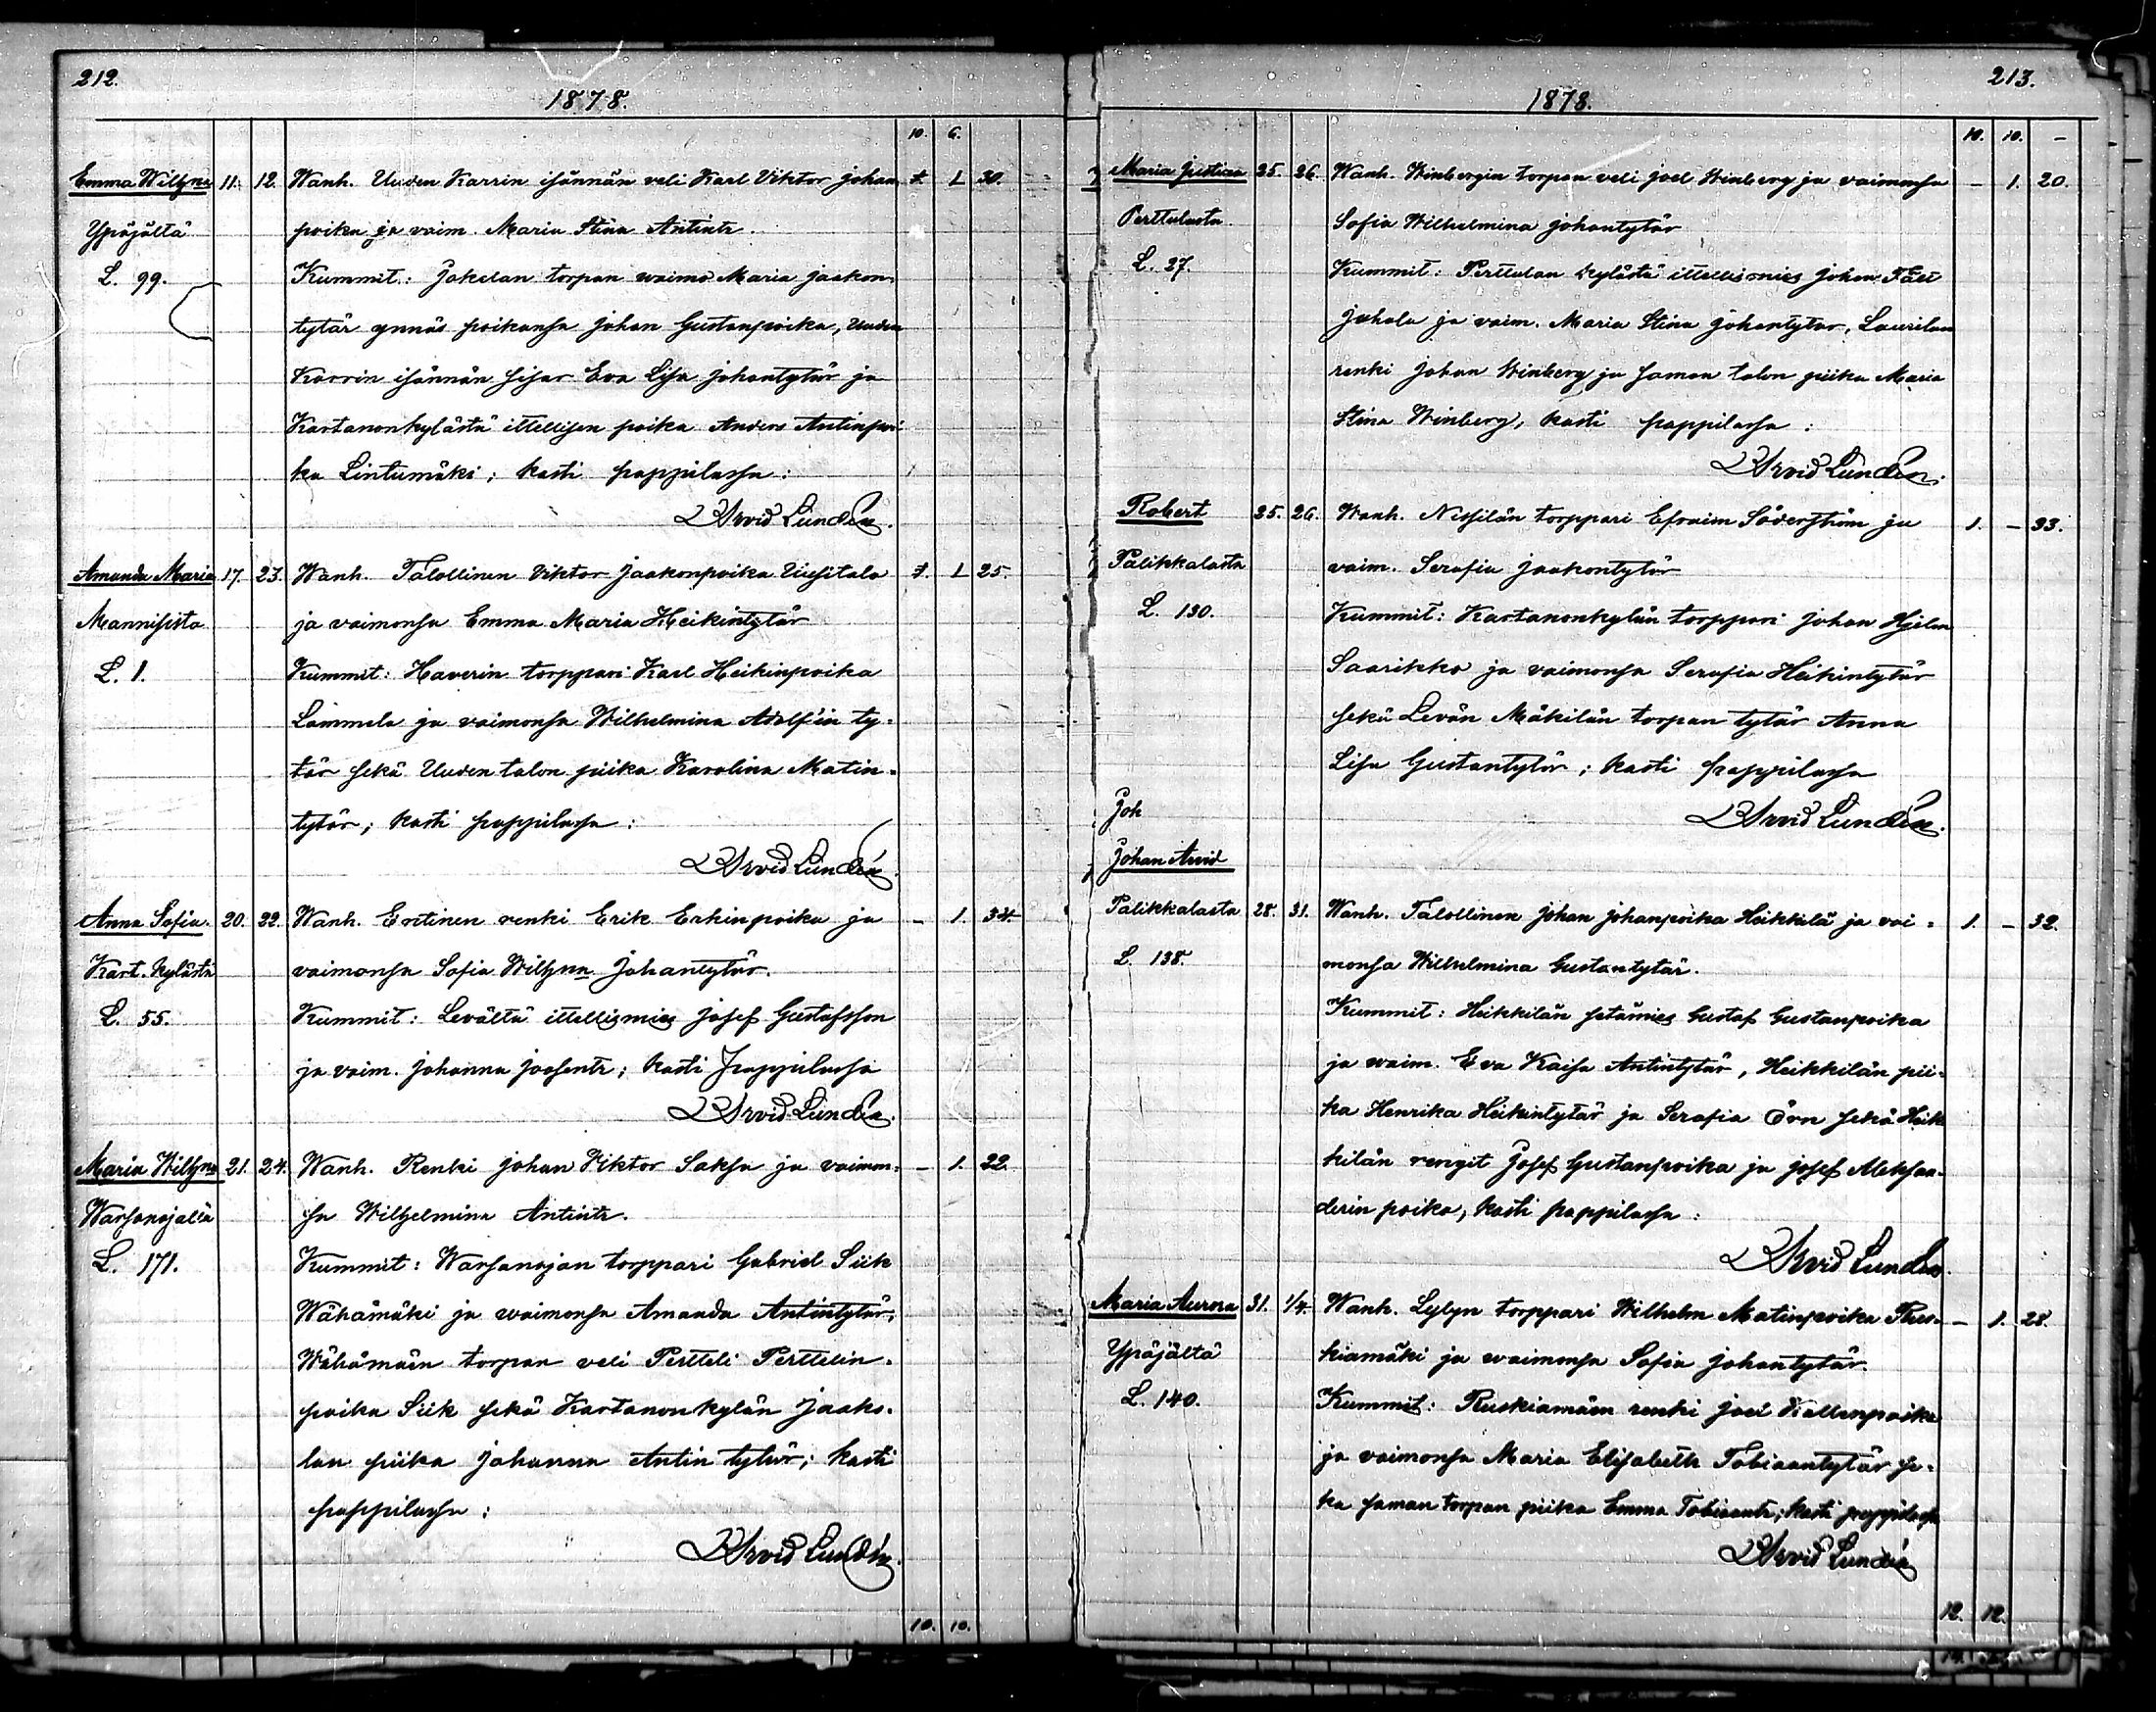 212.
1878.
10. 6.
Emma Wilhna 11. 12. Wanh. Uuden Karrin isännän veli Karl Viktor Johan 1. 30.
Ypäjältä poika ja vaim. Maria Stina Antintr.
L. 99. Kummit: Jokelan torpan waimo Maria Jaakon-
tytär ynnäs poikansa Johan Gustanpoika, Uuden
Karrin isännän sisar Eva Lisa Johantytär ja
Kartanonkylästä ittellisen poika Anders Antinpoi-
ka Lintumäki; kasti pappilassa:
Arvid Lundén.
Amanda Maria 17. 23. Wanh. Talollinen Viktor Jaakonpoika Uusitalo 1 25.
Mannisista ja vaimonsa Emma Maria Heikintytär
L. 1. Kummit: Haverin torppari Karl Heikinpoika
Lammela ja vaimonsa Wilhelmina Adolf'in ty-
tär sekä Uuden talon piika Karolina Matin-
tytär; kasti pappilassa:
Arvid Lundén.
Anna Sofia. 20. 22. Wanh. Entinen renki Erik Erkinpoika ja – 1. 34.
Kart. kylästä vaimonsa Sofia Wilhna Johantytär.
L. 55. Kummit: Levältä ittellismies Josef Gustafsson
ja vaim. Johanna Joosentr; kasti pappilassa
Arvid Lundén.
Maria Wilhna 21. 24. Wanh. Renki Johan Viktor Saksa ja vaimon- – 1. 22.
Warsanojalta sa Wilhelmina Antintr.
L. 171. Kummit: Warsanojan torppari Gabriel Siik
Wähämäki ja waimonsa Amanda Antintytär,
Wähämäen torpan veli Pertteli Perttelin-
poika Siik sekä Kartanonkylän Jaako-
lan piika Johanna Antin tytär; kasti
pappilassa:
Arvid Lundén.
10. 10.
213.
1878.
10. 10. –
Maria Justina 25. 26. Wanh. Winbergin torpan veli Joel Winberg ja vaimonsa – 1. 20.
Perttulasta Sofia Wilhelmina Johantytär
L. 27. Kummit: Perttulan kylästä ittellismies Johan Fält
Juhala ja vaim. Maria Stina Johantytär, Laurilan
renki Johan Winberg ja saman talon piika Maria
Stina Winberg; kasti pappilassa:
Arvid Lundén.
Robert 25. 26. Wanh. Nissilän torppari Efraim Söderström ja 1. – 33.
Palikkalasta vaim. Serafia Jaakontytär
L. 130. Kummit: Kartanonkylän torppari Johan Hjelm
Saarikko ja vaimonsa Serafia Heikintytär
sekä Levän Mäkilän torpan tytär Anna
Lisa Gustantytär; kasti pappilassa
Joh Arvid Lundén.
Johan Arvid
Palikkalasta 28. 31. Wanh. Talollinen Johan Johanpoika Heikkilä ja vai- 1. – 32.
L. 138. monsa Wilhelmina Gustantytär.
Kummit: Heikkilän setämies Gustaf Gustanpoika
ja waim. Eva Kaisa Antintytär, Heikkilän pii-
ka Henrika Heikintytär ja Serafia Örn sekä Heik
kilän rengit Josef Gustanpoika ja Josef Aleksan-
derin poika; kasti pappilassa:
Arvid Lundén.
Maria Aurora 31. 1/4. Wanh. Lylyn torppari Wilhelm Matinpoika Rus- – 1. 28.
Ypäjältä kiamäki ja waimonsa Sofia Johantytär.
L. 140. Kummit: Ruskiamäen renki Joel Kallenpoika
ja vaimonsa Maria Elisabeth Tobiaantytär se-
kä saman torpan piika Emma Tobiaantr; kasti pappilassa
Arvid Lundén
12. 12.